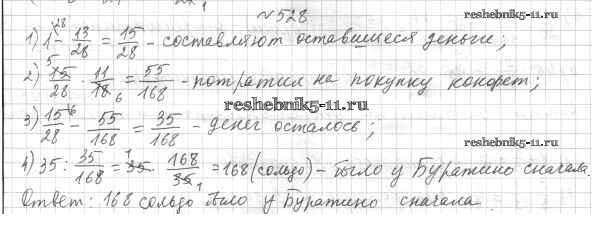 №528
reshebnik5-11.ru
1) 1²⁸ - 13/28 = 15/28 - составляют оставшиеся деньги;
2) ⁵15/28 · 11/18₆ = 55/168 - потратил на покупку конфет;
reshebnik5-11.ru
3) 15⁶/28 - 55/168 = 35/168 - денег осталось;
reshebnik5-11.ru
4) 35 : 35/168 = ¹35 · 168/35₁ = 168 (сольдо) - было у Буратино сначала.
Ответ: 168 сольдо было у Буратино сначала.
reshebnik5-11.ru